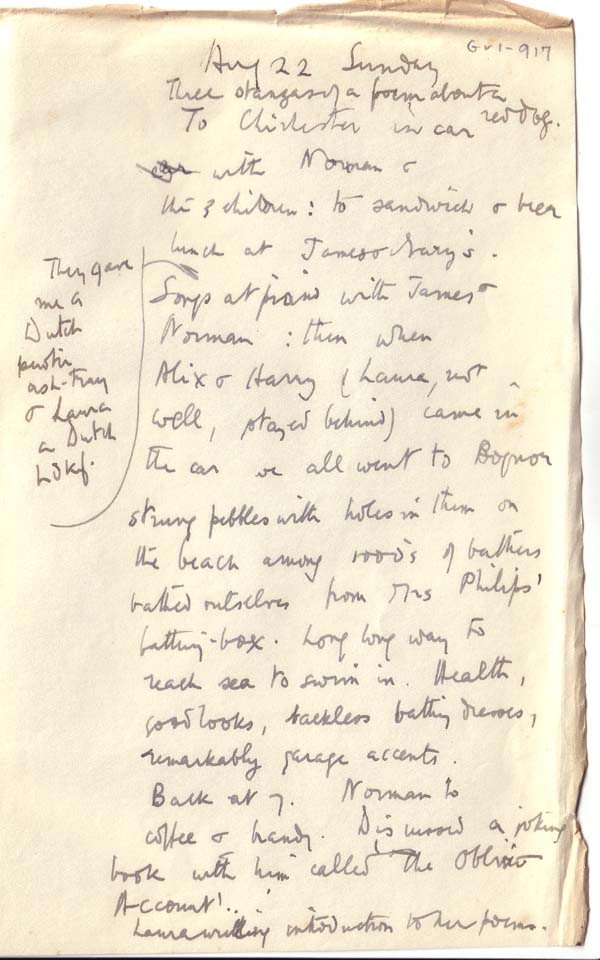 GV1-917
Aug 22 Sunday
Three stanzas of a poem about a
red dog.
To Chichester in car
with Norman &
the 3 children: to sandwich & beer
lunch at James & Mary's.
Songs at piano with James &
Norman : then when
Alix & Harry (Laura, not
well, stayed behind) came in
the car we all went to Bognor
strung pebbles with holes in them on
the beach among 1000's of bathers
bathed ourselves from Mrs Philips'
bathing-box. Long long way to
reach sea to swim in. Health,
good looks, backless bathing dresses,
remarkably garage accents.
Back at 7. Norman to
coffee & brandy. Discussed a joking
book with him called 'The Oblivio
Account'..
Laura writing introduction to her poems.
They gave
me a
Dutch
ash-tray
& Laura
a Dutch